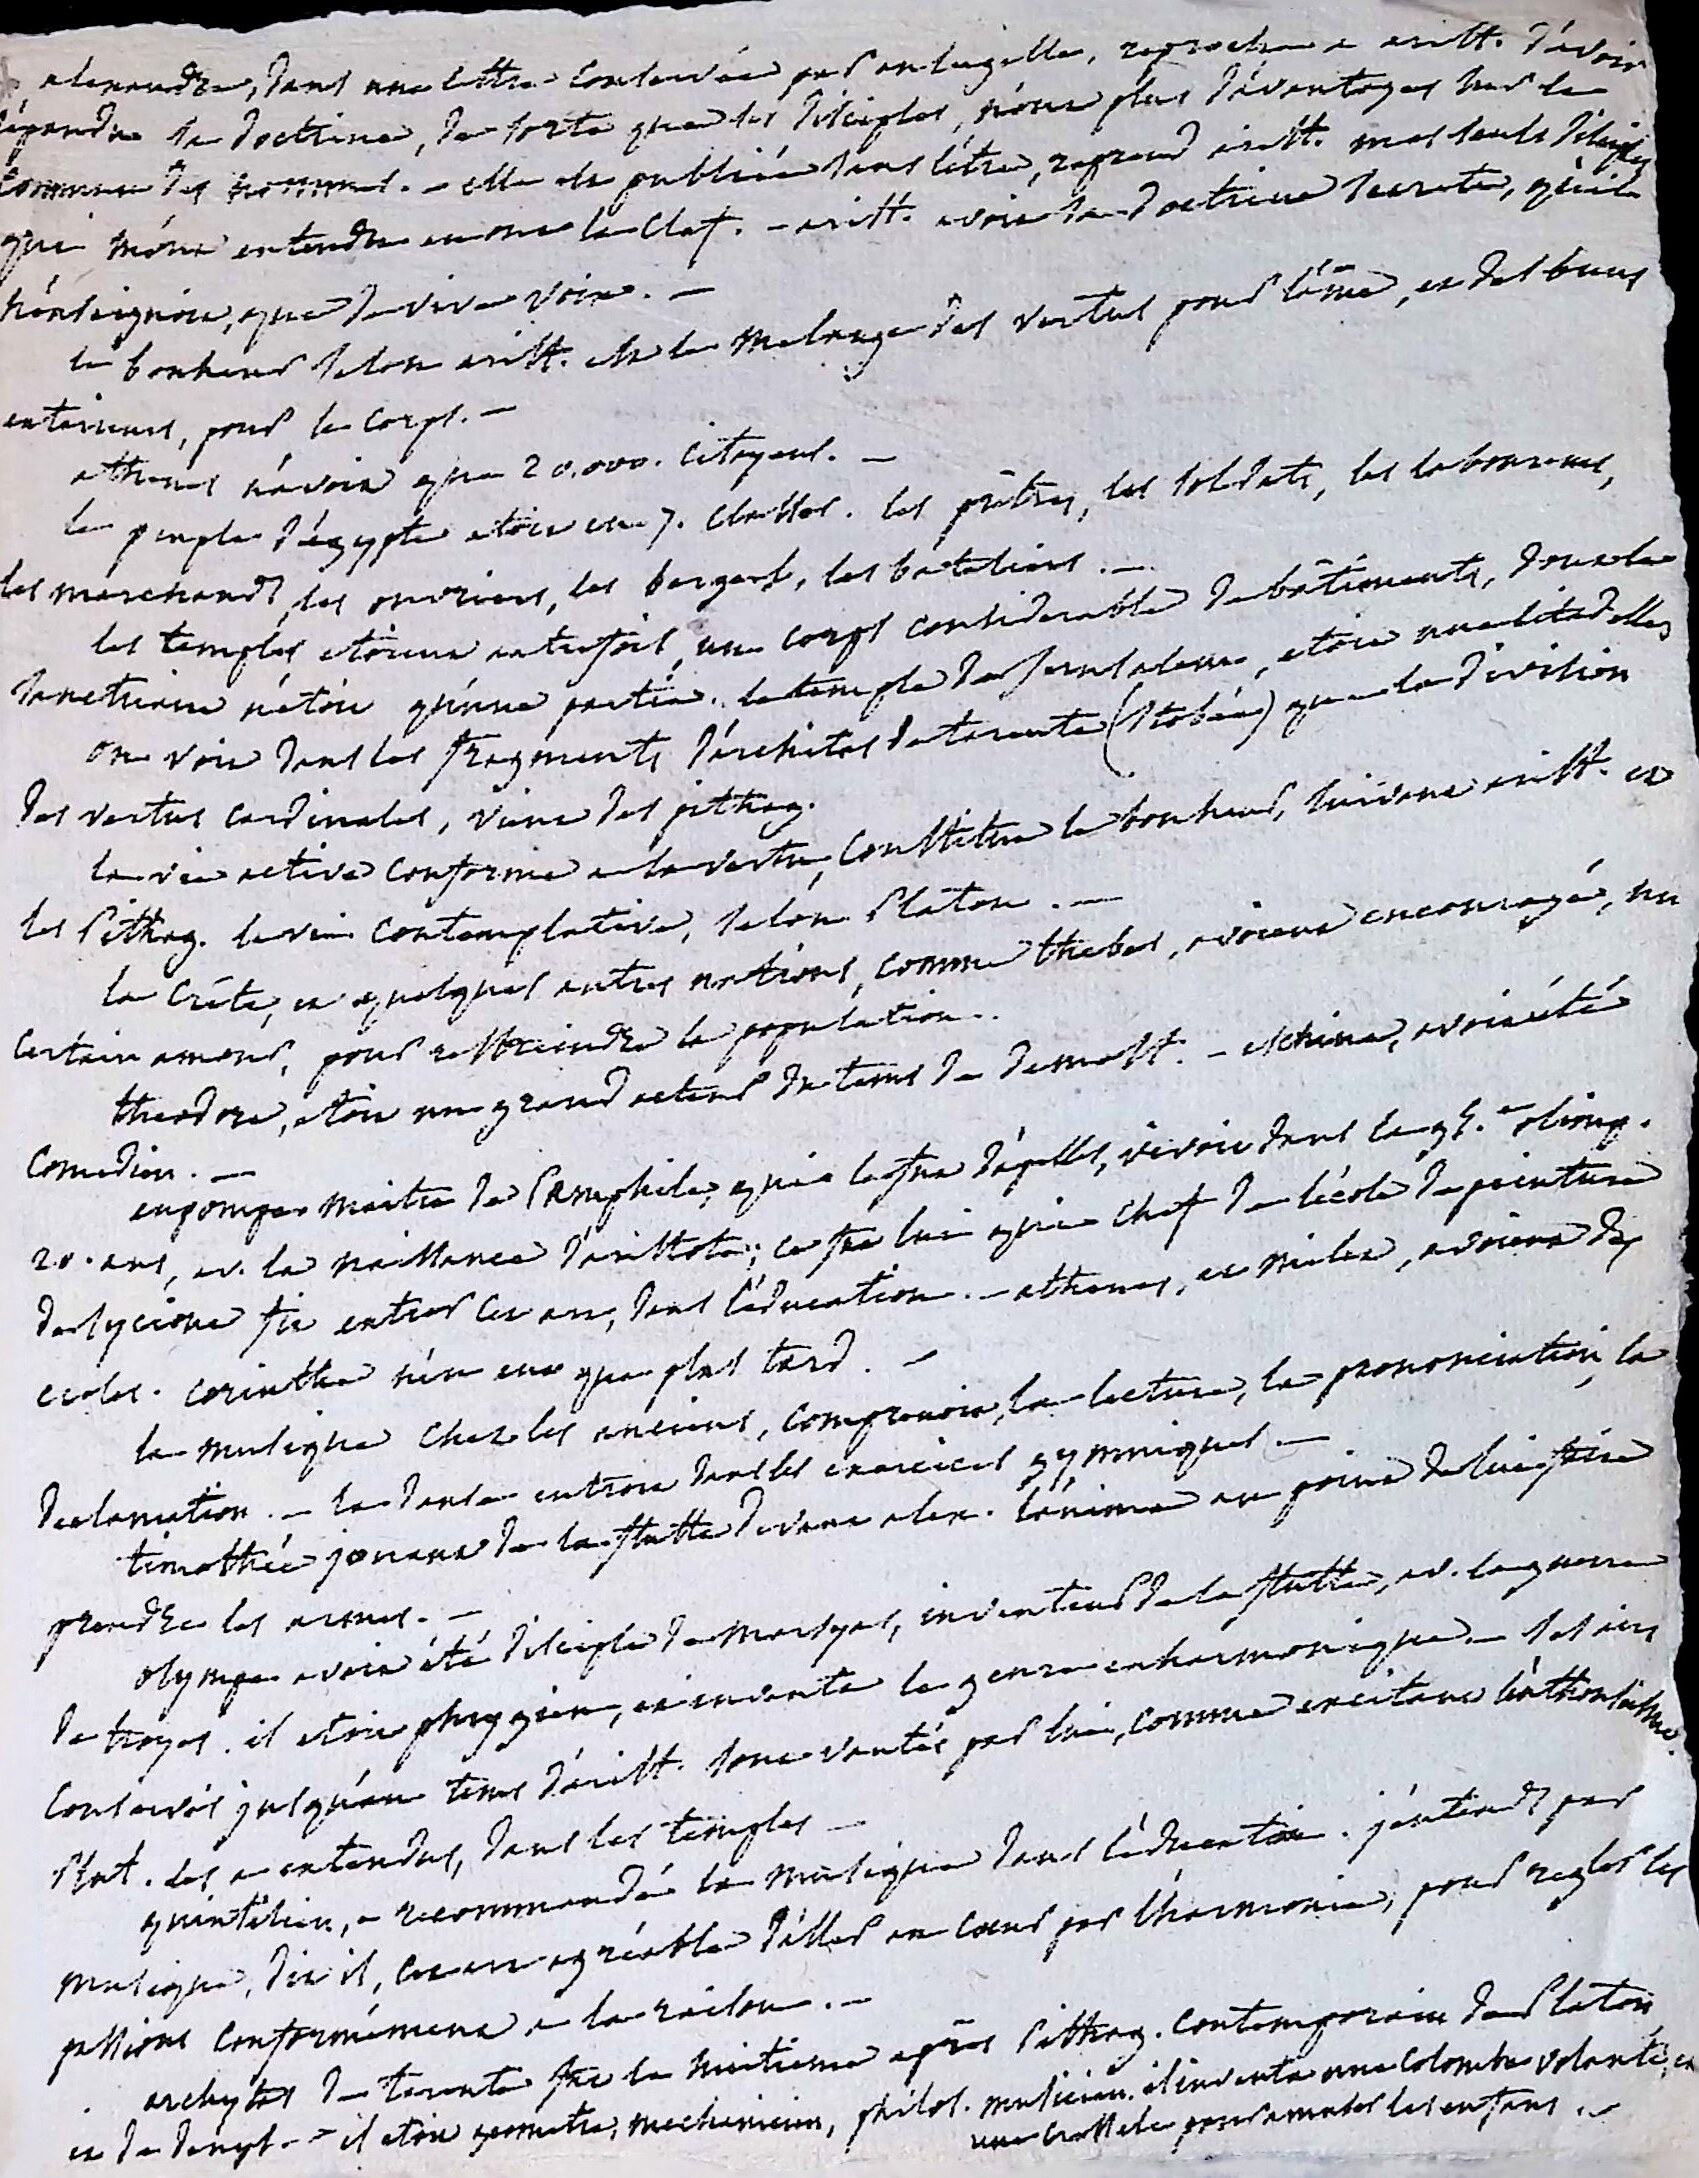 alexandre, dans une lettre conservée par aulugelle, reproche a arist. d'avoir
répandu sa doctrine, de sorte que ses disciples, n'ont plus d'avantages sur le
commun des hommes. - elle est publiée sans l'être, repond arist. mes seuls disciples
qui m'ont entendu en ont la clef. - arist. avoit sa doctrine secrete, qu'il
n'enseignoit, que de vive voix. -
le bonheur selon arist. est le melange des vertus pour l'âme, et des biens
exterieurs, pour le corps. -
athenes n'avoit que 20.000. citoyens. -
le peuple d'égypte etoit en 7. classes. les prêtres, les soldats, les laboureurs,
les marchands, les ouvriers, les bergers, les bateliers. -
les temples etoient autrefois, un corps considerable de bâtiments, dont le
sanctuaire n'étoit qu'une partie. le temple de Jerusalem, etoit une citadelle
on voit dans les fragments d'architas de tarente (stobée) que la division
des vertus cardinales, vient des pithag.
la vie active conforme a la vertu, constitue le bonheur, suivant arist. et
les Pithag. la vie contemplative, selon Platon. -
la Crète, et quelques autres nations, comme thebes, avoient encouragé, un
certain amour, pour restreindre la population.
theodore, etoit un grand acteur du tems de demost. - eschine, avoit été
comedien. -
eupompe maitre de Pamphile, qui le fut d'apelles, vivoit dans la 95.e olimp.
20. ans, av. la naissance d'aristote; ce fut lui qui chef de l'école de peinture
de sycione fit entrer cet art, dans l'éducation. - athenes, et milet, avoient des
ecoles. corinthe n'en eut que plus tard. -
la musique chez les anciens, comprenoit, la lecture, la prononciation, la
declamation. - la danse entroit dans les exercices gymniques. -
timothée jouant de la flutte devant alex. l'anima au point de lui faire
prendre les armes. -
olympe avoit été disciple de marsyas, inventeur de la flutte, av. la guerre
de troyes. il etoit phrygien, et inventa le genre enharmonique. - ses airs
conservés jusqu'au tems d'arist. sont vantés par lui, comme excitant l'enthousiasme.
Plut. les a entendus, dans les temples -
quintilien, a recommandé la musique dans l'éducation. j'entends par
musique, dit il, cet art agréable d'aller au coeur par l'harmonie, pour regler les
passions conformément a la raison. -
archytas de tarente fut le huitieme après Pithag. contemporain de Platon
et de denys. - il etoit geometre, mechanicien, philos. musicien. il inventa une colombe volante, et
une crecelle pour amuser les enfans. -